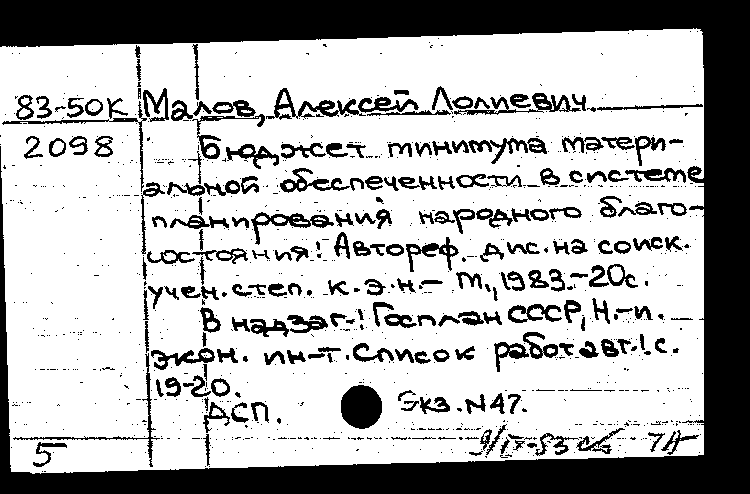 83-50К Малов, Алексей Лолиевич.
2098 Бюджет минимума матери-
альной обеспеченности в системе
планирования народного благо-
состояния: Автореф. дис. на соиск.
учен. степ. к.э.н. – М., 1983. – 20с.
В надзаг.: Госплан СССР, Н.-и.
экон. ин-т. Список работ авт.: с.
19-20.
ДСП. Экз. N47.
5 7А